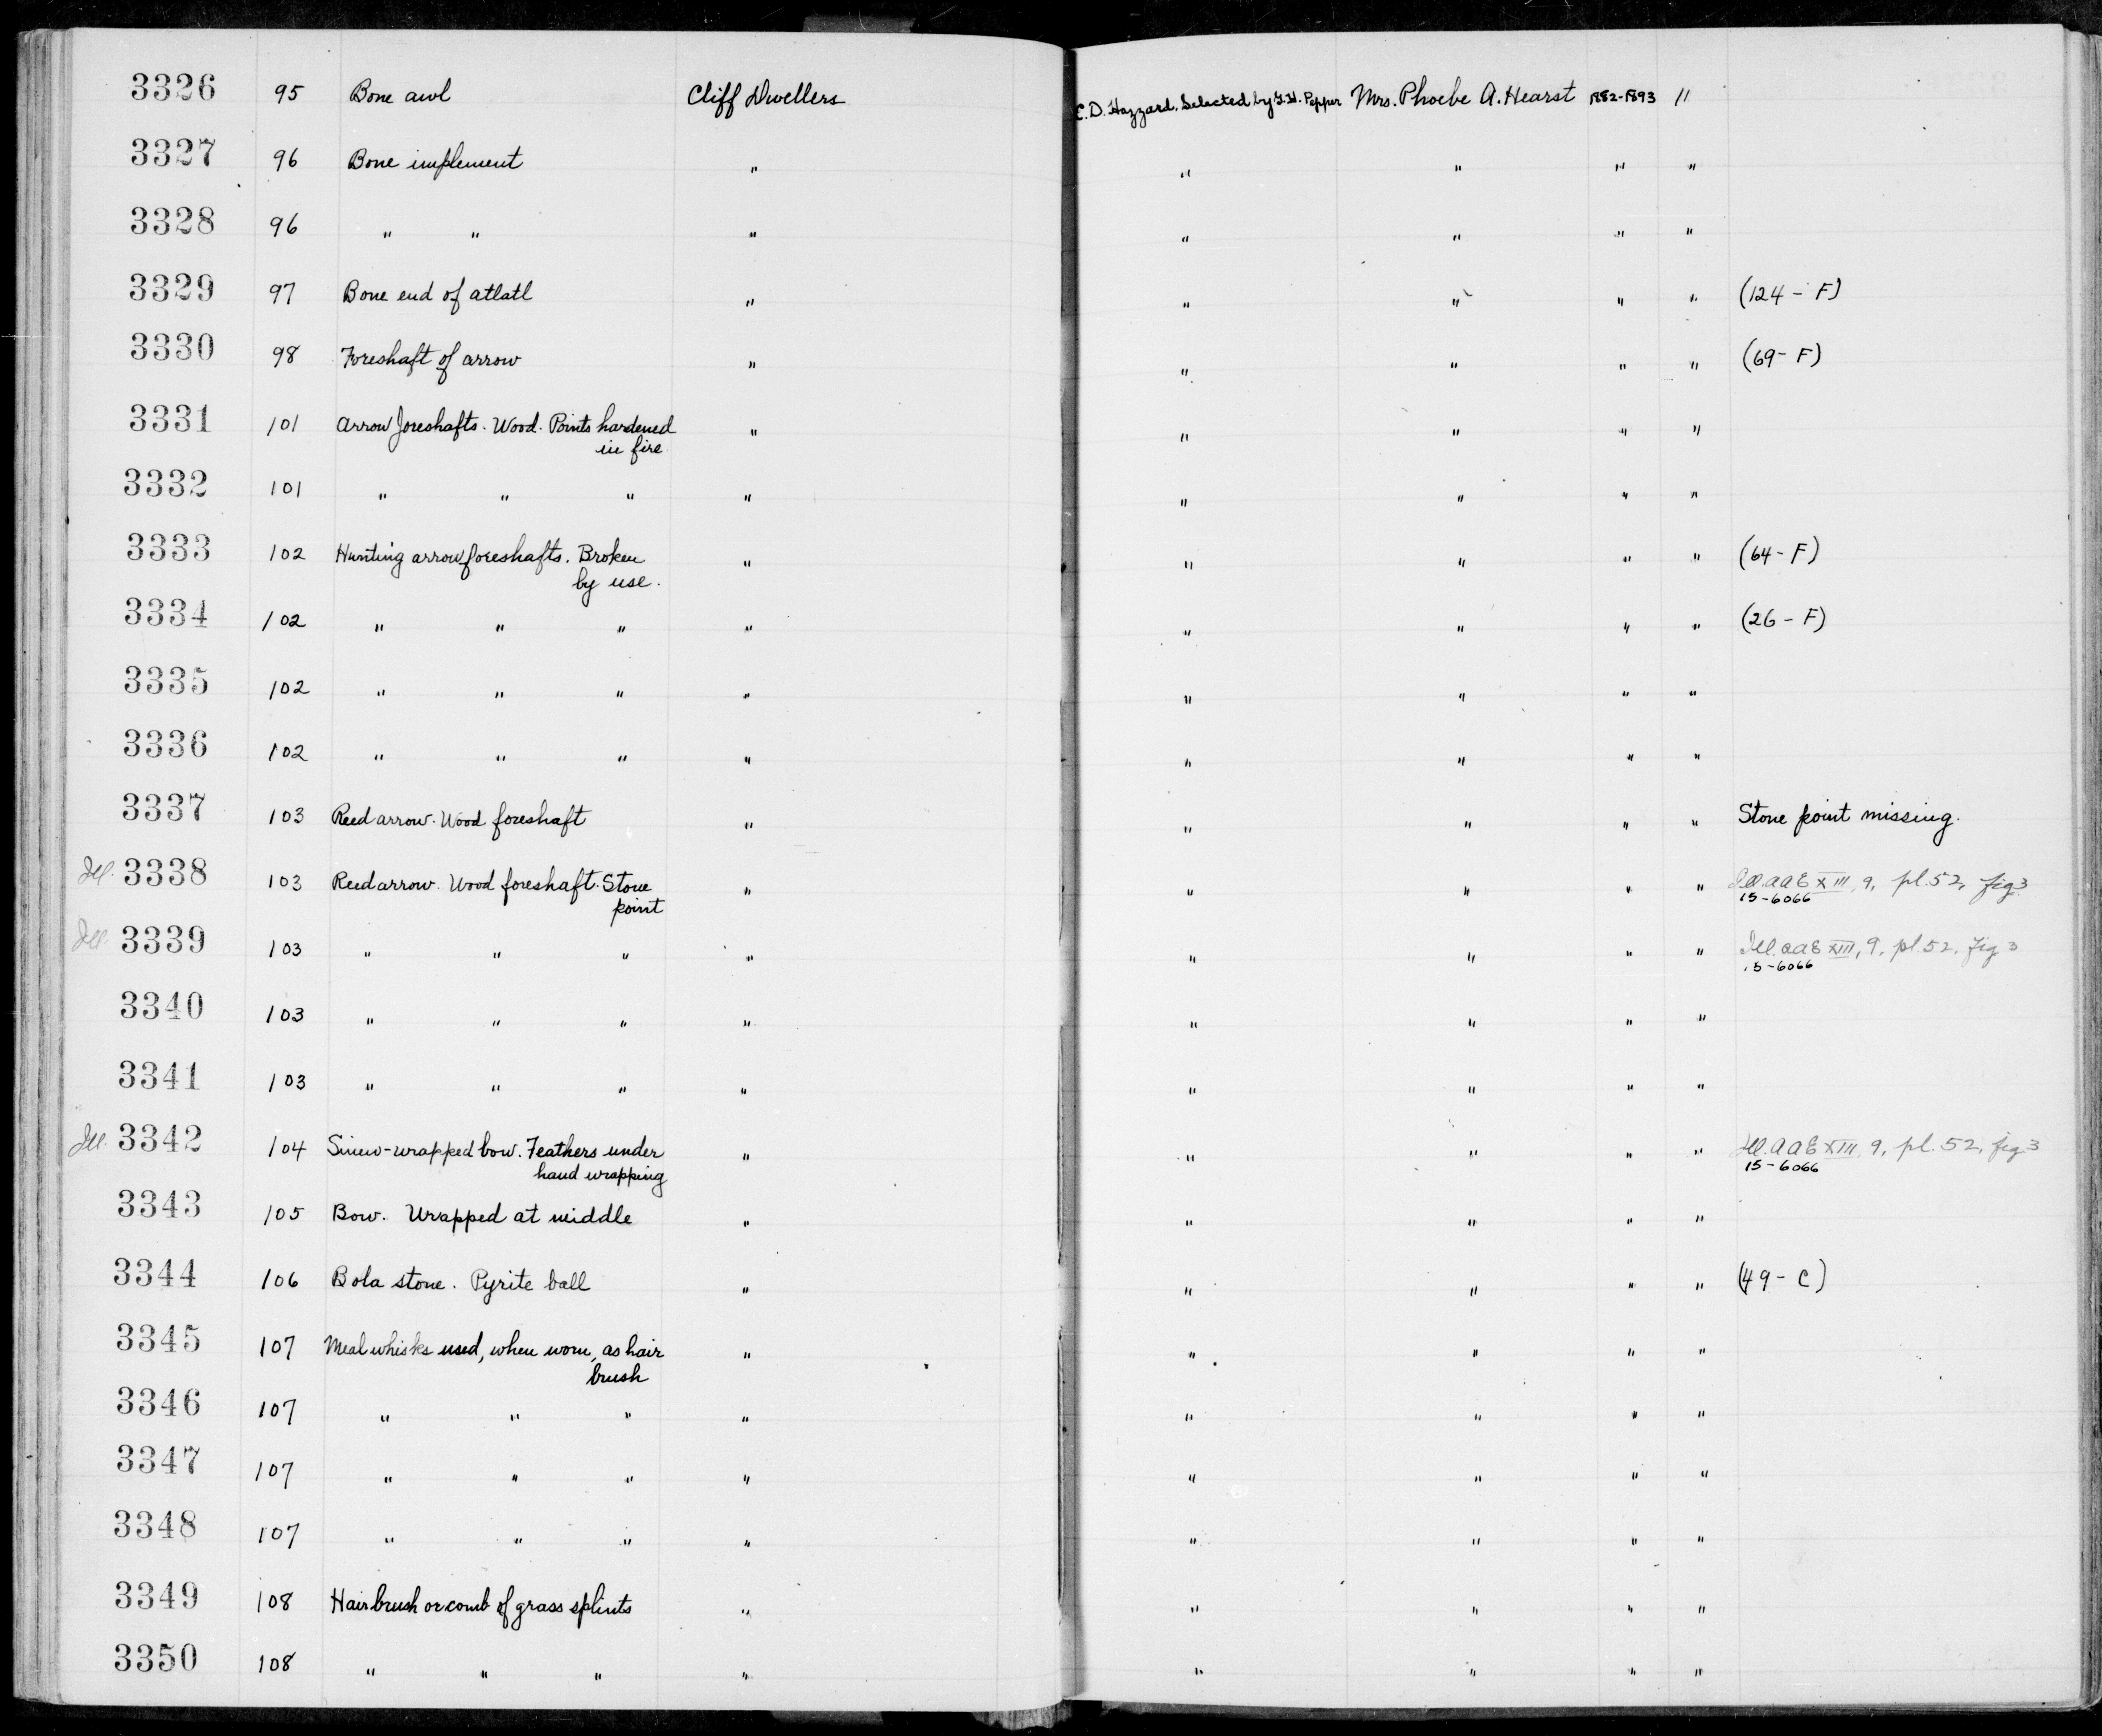 3326 95 Bone awl Cliff Dwellers E.D. Hazzard. Selected by G.H. Pepper Mrs. Phoebe A. Hearst 1882-1893 11
3327 96 Bone implement " " " " "
3328 96 " " " " " " "
3329 97 Bone end of atlatl " " " " " (124-F)
3330 98 Foreshaft of arrow " " " " " (69-F)
3331 101 Arrow foreshafts. Wood. Points hardened " " " " "
in fire
3332 101 " " " " " " " "
3333 102 Hunting arrow foreshafts. Broken " " " " " (64-F)
by use.
3334 102 " " " " " " " " (26-F)
3335 102 " " " " " " " "
3336 102 " " " " " " " "
3337 103 Reed arrow. Wood foreshaft " " " " " Stone point missing.
Ill. 3338 103 Reed arrow. Wood foreshaft. Stone " " " " " Ill. AAE XIII, 9, pl. 52, fig 3
point 15-6066
Ill. 3339 103 " " " " " " " " Ill. AAE XIII, 9, pl. 52, fig 3
15-6066
3340 103 " " " " " " " "
3341 103 " " " " " " " "
Ill. 3342 104 Sinew-wrapped bow. Feathers under " " " " " Ill. AAE XIII, 9, pl. 52, fig 3
hand wrapping 15-6066
3343 105 Bow. Wrapped at middle " " " " "
3344 106 Bola stone. Pyrite ball " " " " " (49-C)
3345 107 Meal whisks used, when worn, as hair " " " " "
brush
3346 107 " " " " " " " "
3347 107 " " " " " " " "
3348 107 " " " " " " " "
3349 108 Hair brush or comb of grass splints " " " " "
3350 108 " " " " " " " "